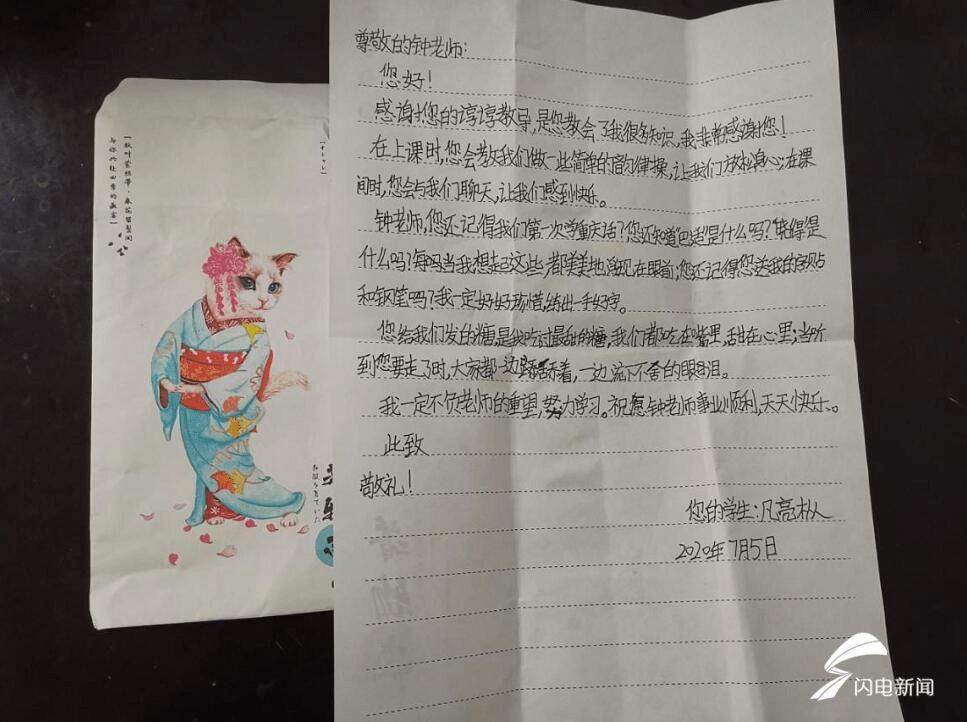 尊敬的钟老师:
您好!
感谢您的谆谆教导,是您教会了我很多知识,我非常感谢您!
在上课时,您会教我们做一些简单的韵律操,让我们放松身心;在课
间时,您会与我们聊天,让我们感到快乐。
钟老师,您还记得我们第一次学重庆话?您还知道"巴适"是什么吗?"晓得"是
什么吗?每当我想起这些,都美美地浮现在眼前;您还记得您送我的字帖
和钢笔吗?我一定好好珍惜,练出一手好字。
您给我们发的糖,是我吃过最甜的糖,我们都吃在嘴里,甜在心里;当听
到您要走了时,大家都一边舔着,一边流下不舍的眼泪。
我一定不负老师的重望,努力学习。祝愿钟老师事业顺利,天天快乐。
此致
敬礼!
您的学生:凡亮
2020年7月5日
与你共赴四季的盛宴】
闪电新闻